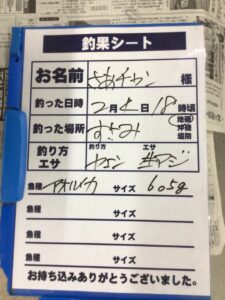 釣果シート
お名前 さあチャン 様
釣った日時 2月4日18時頃
釣った場所 すさみ 地磯 沖磯 堤防
釣り方 エサ 釣り方 ヤエン エサ 生アジ
魚種 アオリイカ サイズ 605g
魚種 サイズ
魚種 サイズ
魚種 サイズ
お持ち込みありがとうございました。